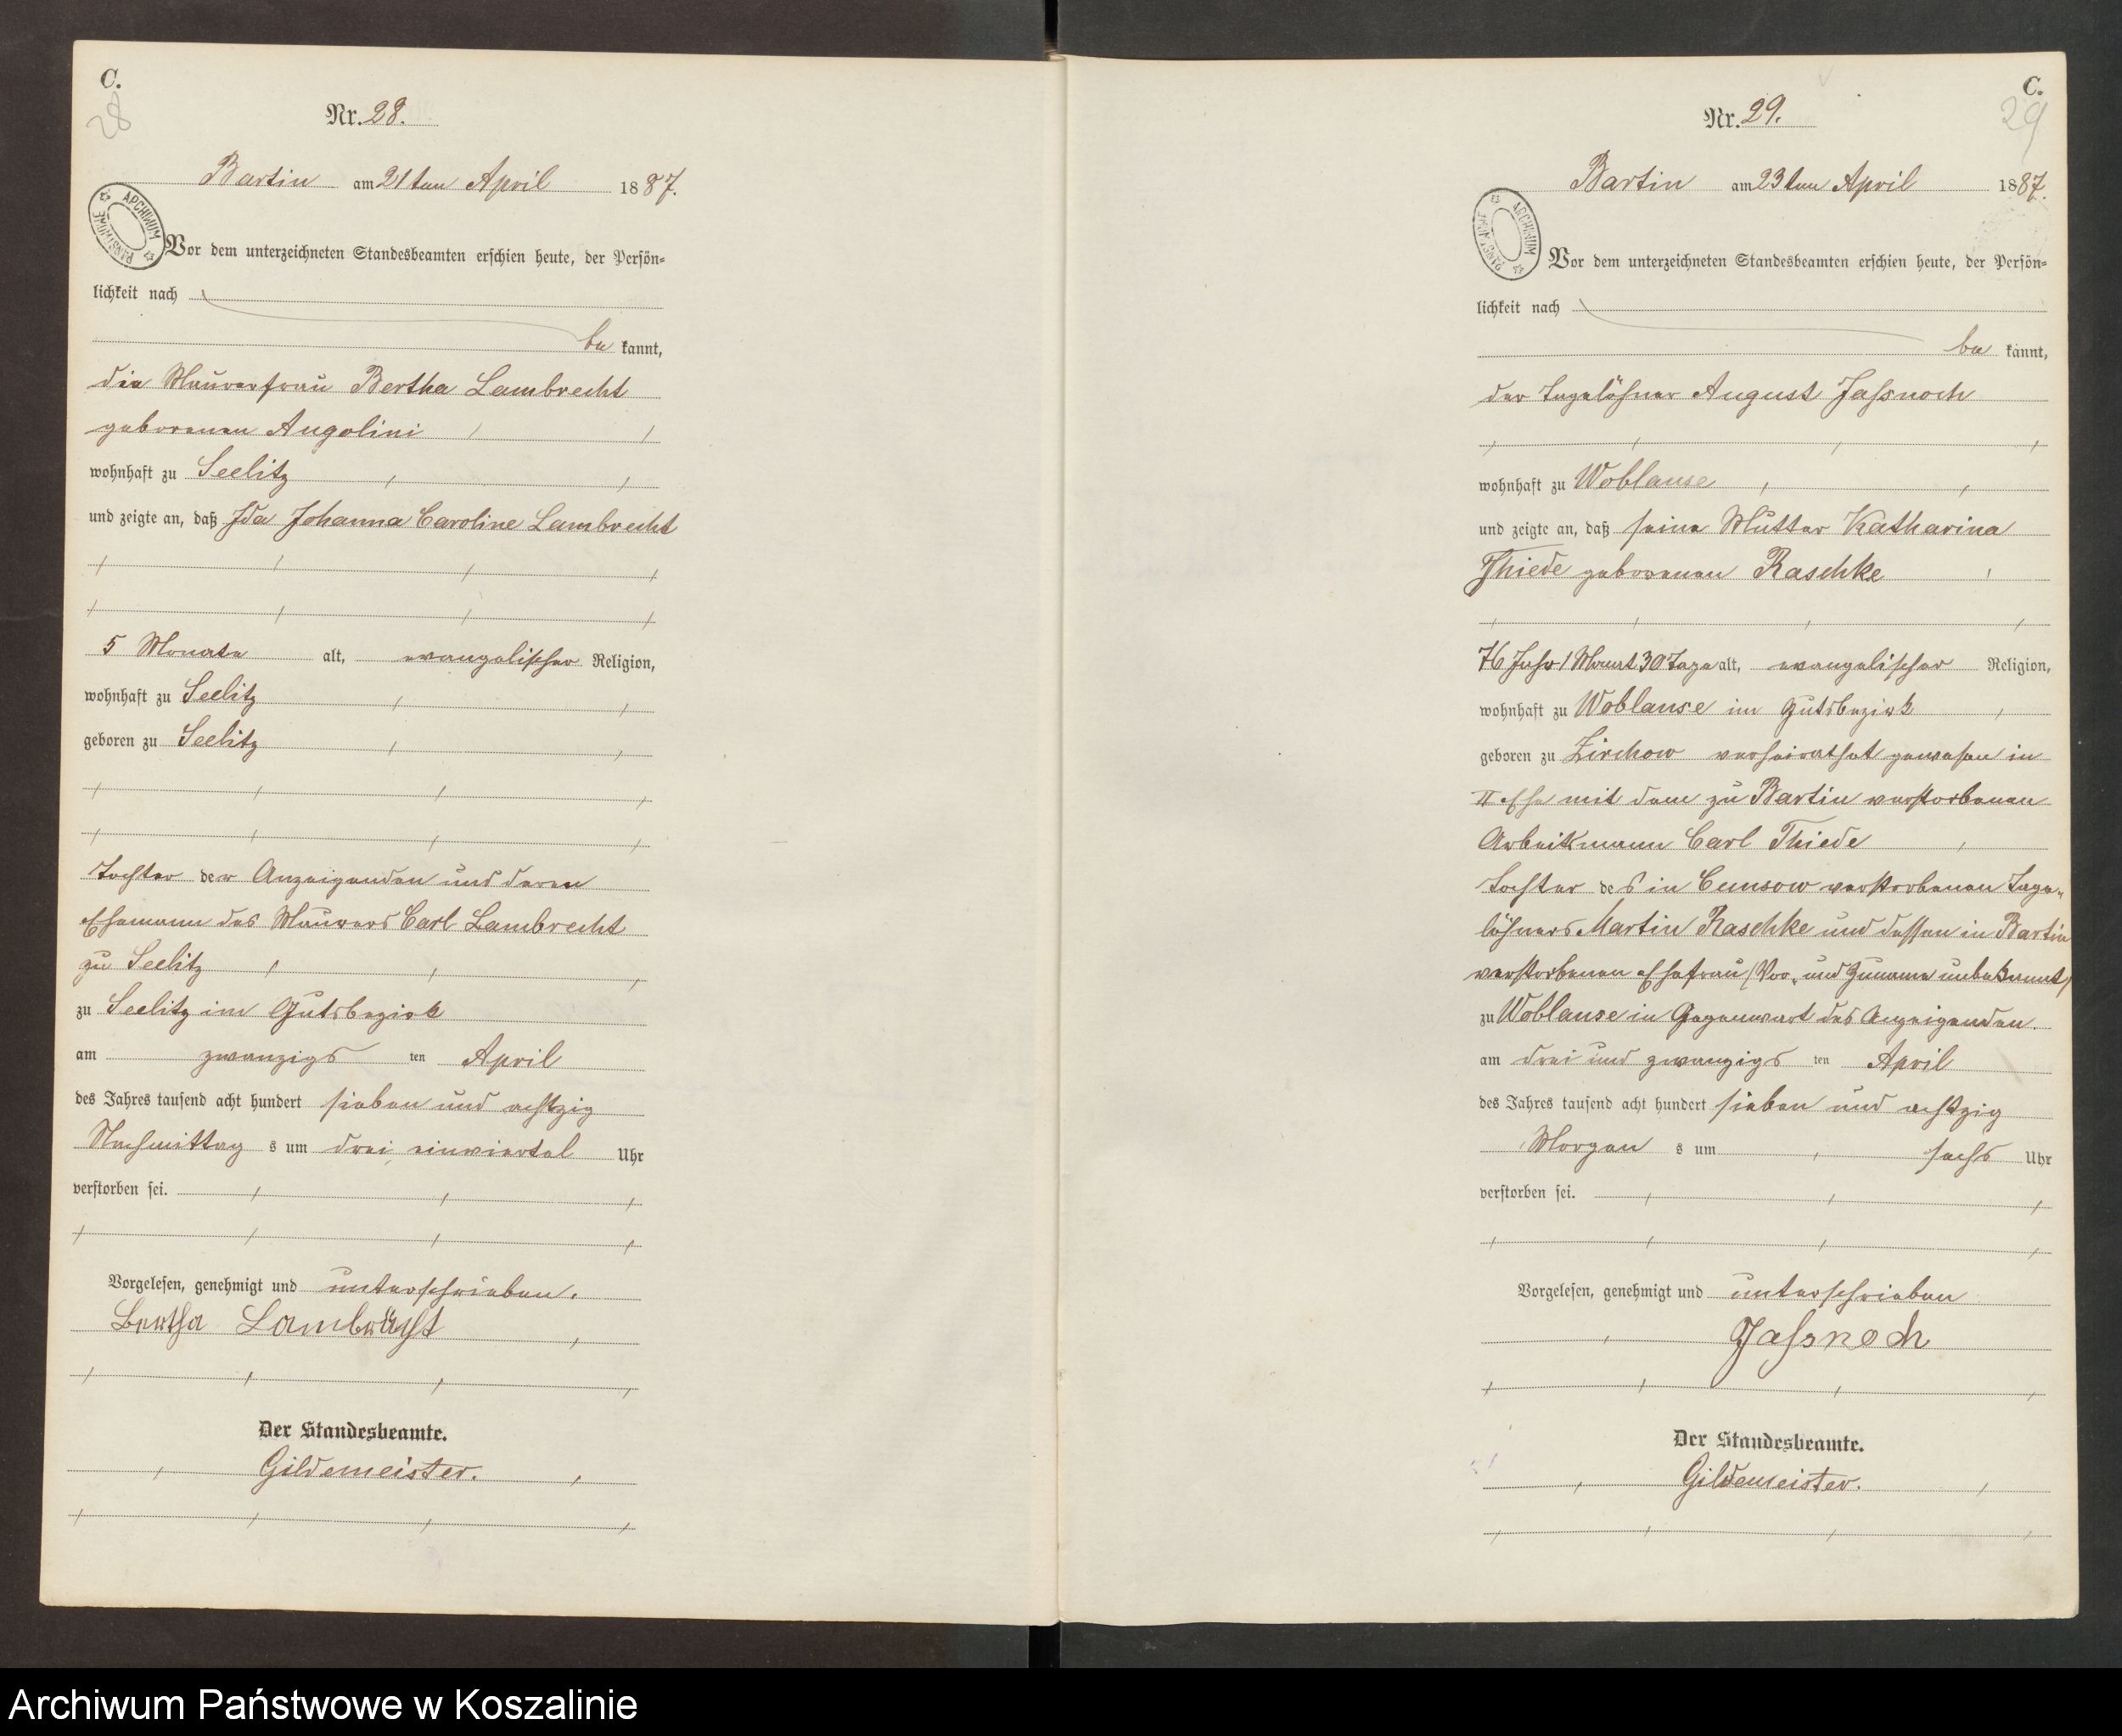 C.
28
Nr. 28.
Bartin am 21ten April 1887.
ARCHIWUM PAŃSTWOWE
Vor dem unterzeichneten Standesbeamten erschien heute, der Persön-
lichkeit nach
be kannt,
die Maurerfrau Bertha Lambrecht
geborenen Angolini
wohnhaft zu Seelitz
und zeigte an, daß Ida Johanna Caroline Lambrecht
5 Monate alt, evangelischer Religion,
wohnhaft zu Seelitz
geboren zu Seelitz
Tochter der Anzeigenden und deren
Ehemann des Maurers Carl Lambrecht
zu Seelitz
zu Seelitz im Gutsbezirk
am zwanzigs ten April
des Jahres tausend acht hundert sieben und achtzig
Nachmittag s um drei einviertel Uhr
verstorben sei.
Vorgelesen, genehmigt und unterschrieben.
Bertha Lambrächt
Der Standesbeamte.
Gildemeister.
C.
29
Nr. 29.
Bartin am 23ten April 1887.
ARCHIWUM PAŃSTWOWE
Vor dem unterzeichneten Standesbeamten erschien heute, der Persön-
lichkeit nach
be kannt,
der Tagelöhner August Jassnoch
wohnhaft zu Woblanse
und zeigte an, daß seine Mutter Katharina
Thiede geborenen Raschke
76 Jahr 1 Monat 30 Tage alt, evangelischer Religion,
wohnhaft zu Woblanse im Gutsbezirk
geboren zu Zirchow verheirathet gewesen in
II Ehe mit dem zu Bartin verstorbenen
Arbeitsmann Carl Thiede
Tochter des in Cunsow verstorbenen Tage-
löhners Martin Raschke und dessen in Bartin
verstorbenen Ehefrau (Vor- und Zuname unbekannt)
zu Woblanse in Gegenwart des Anzeigenden.
am drei und zwanzigs ten April
des Jahres tausend acht hundert sieben und achtzig
Morgen s um sechs Uhr
verstorben sei.
Vorgelesen, genehmigt und unterschrieben
Jassnoch
Der Standesbeamte.
Gildemeister.
Archiwum Państwowe w Koszalinie